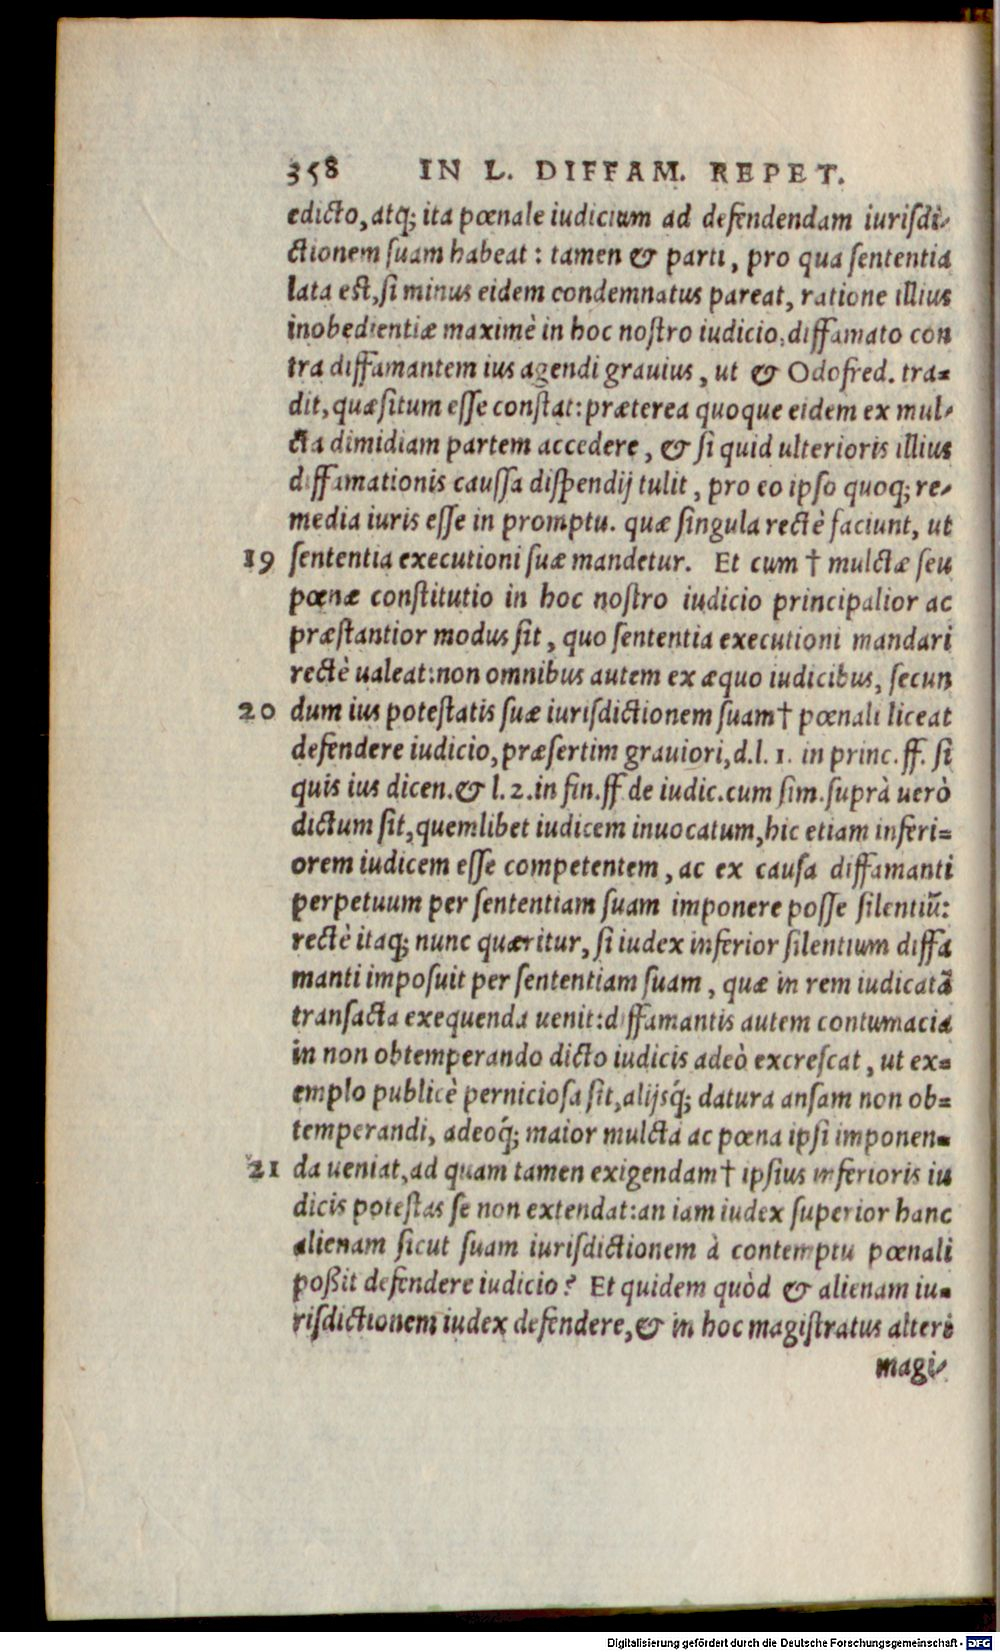 358 IN L. DIFFAM. REPET.
edicto, atq; ita pœnale iudicium ad defendendam iurisdi-
ctionem suam habeat: tamen & parti, pro qua sententia
lata est, si minus eidem condemnatus pareat, ratione illius
inobedientiæ maximè in hoc nostro iudicio, diffamato con
tra diffamantem ius agendi grauius, ut & Odofred. tra-
dit, quæsitum esse constat: præterea quoque eidem ex mul-
cta dimidiam partem accedere, & si quid ulterioris illius
diffamationis caussa dispendij tulit, pro eo ipso quoq; re-
media iuris esse in promptu. quæ singula rectè faciunt, ut
19 sententia executioni suæ mandetur. Et cum † mulctæ seu
pœnæ constitutio in hoc nostro iudicio principalior ac
præstantior modus sit, quo sententia executioni mandari
rectè ualeat: non omnibus autem ex æquo iudicibus, secun
20 dum ius potestatis suæ iurisdictionem suam † pœnali liceat
defendere iudicio, præsertim grauiori, d. l. 1. in princ. ff. si
quis ius dicen. & l. 2. in fin. ff de iudic. cum sim. suprà uerò
dictum sit, quemlibet iudicem inuocatum, hic etiam inferi-
orem iudicem esse competentem, ac ex causa diffamanti
perpetuum per sententiam suam imponere posse silentiũ:
rectè itaq; nunc quæritur, si iudex inferior silentium diffa
manti imposuit per sententiam suam, quæ in rem iudicatã
transacta exequenda uenit: diffamantis autem contumacia
in non obtemperando dicto iudicis adeò excrescat, ut ex-
emplo publicè perniciosa sit, alijsq́; datura ansam non ob-
temperandi, adeoq́; maior mulcta ac pœna ipsi imponen-
21 da ueniat, ad quam tamen exigendam † ipsius inferioris iu
dicis potestas se non extendat: an iam iudex superior hanc
alienam sicut suam iurisdictionem à contemptu pœnali
poßit defendere iudicio? Et quidem quòd & alienam iu-
risdictionem iudex defendere, & in hoc magistratus alteri
magi-
Digitalisierung gefördert durch die Deutsche Forschungsgemeinschaft - DFG